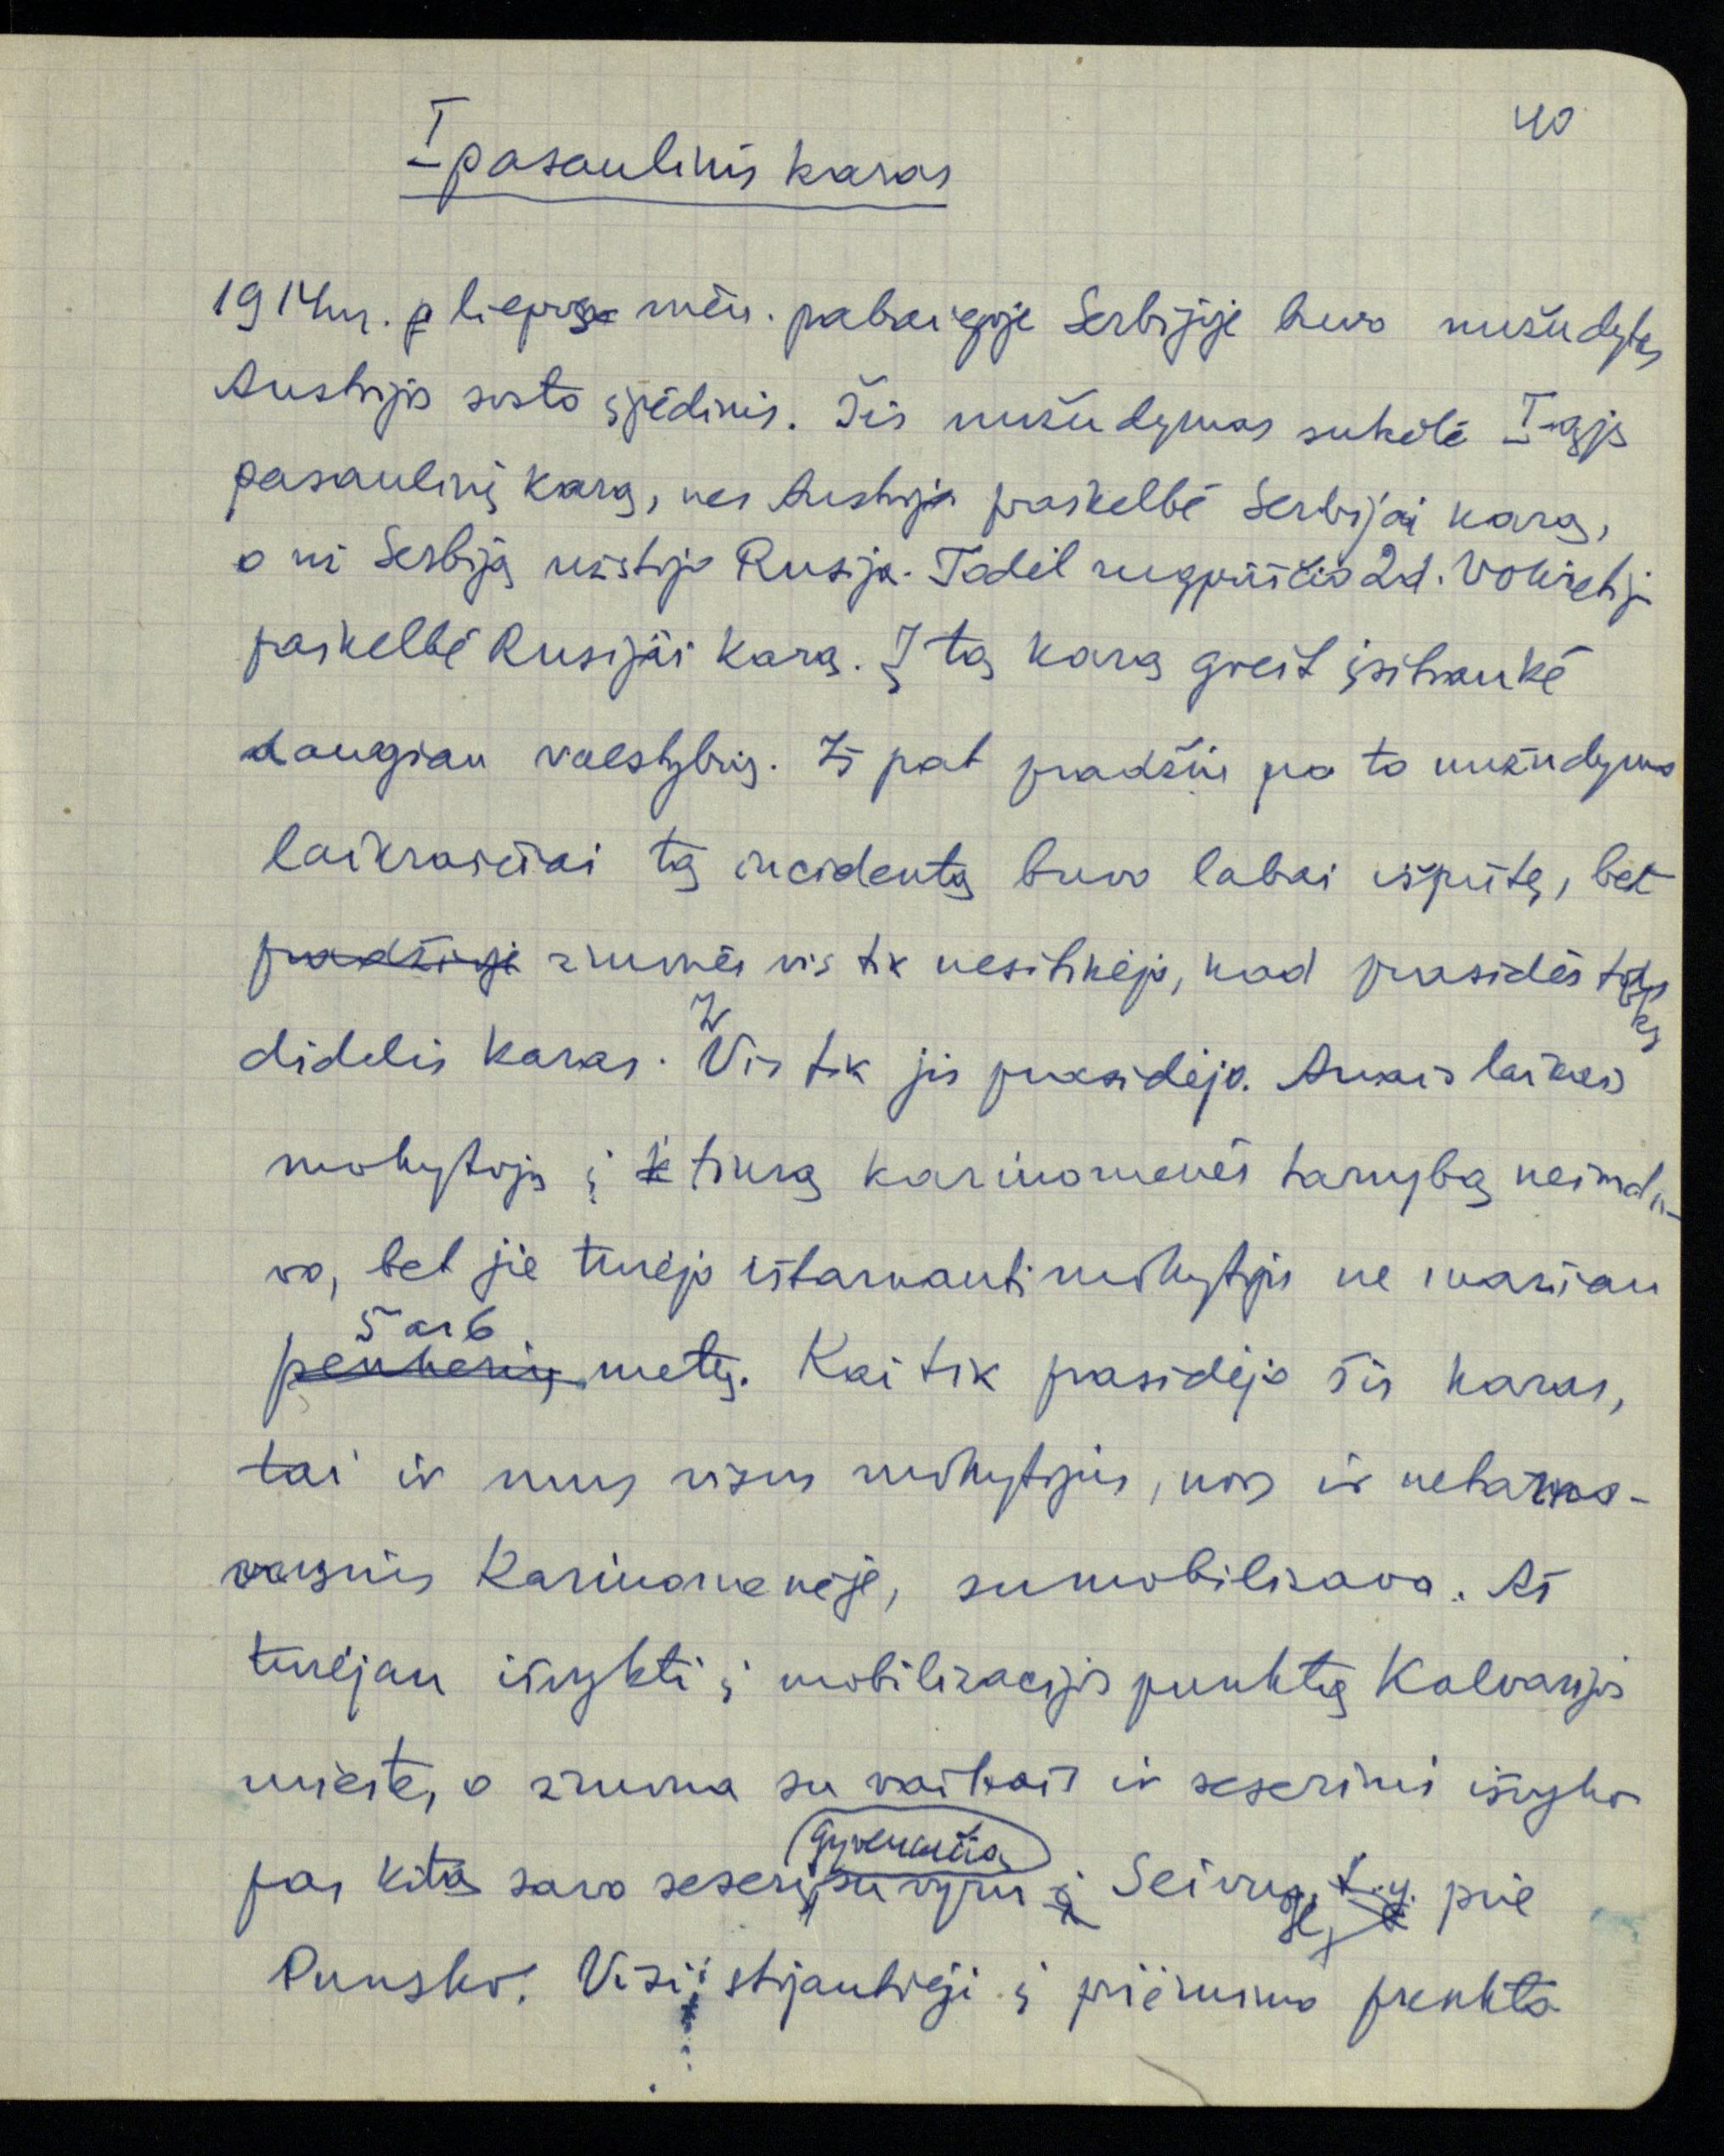 40
I pasaulinis karas
1914 m. liepos mėn. pabaigoje Serbijoje buvo nužudytas
Austrijos sosto įpėdinis. Šis nužudymas sukėlė I-ąjį
pasaulinį karą, nes Austrija paskelbė Serbijai karą,
o už Serbiją užstojo Rusija. Todėl rugpiūčio 2 d. Vokietija
paskelbė Rusijai karą. Į tą karą greit įsitraukė
daugiau valstybių. Iš pat pradžių po to nužudymo
laikraščiai tą incidentą buvo labai išpūtę, bet
pradžioje žmonės vis tik nesitikėjo, kad prasidės toks
didelis karas. Vis tik jis prasidėjo. Anais laikais
mokytojų į tikrą kariuomenės tarnybą neimda-
vo, bet jie turėjo ištarnauti mokytojais ne mažiau
5 ar 6
penkerių metų. Kai tik prasidėjo šis karas,
tai ir mus visus mokytojus, nors ir netarna-
vusius kariuomenėje, sumobilizavo. Aš
turėjau išvykti į mobilizacijos punktą Kalvarijos
mieste, o žmona su vaikais ir seserimi išvyko
gyvenančią
pas kitą savo seserį, su vyru į Seivus, t.y. prie
Punsko. Visi stojantieji į priėmimo punktą